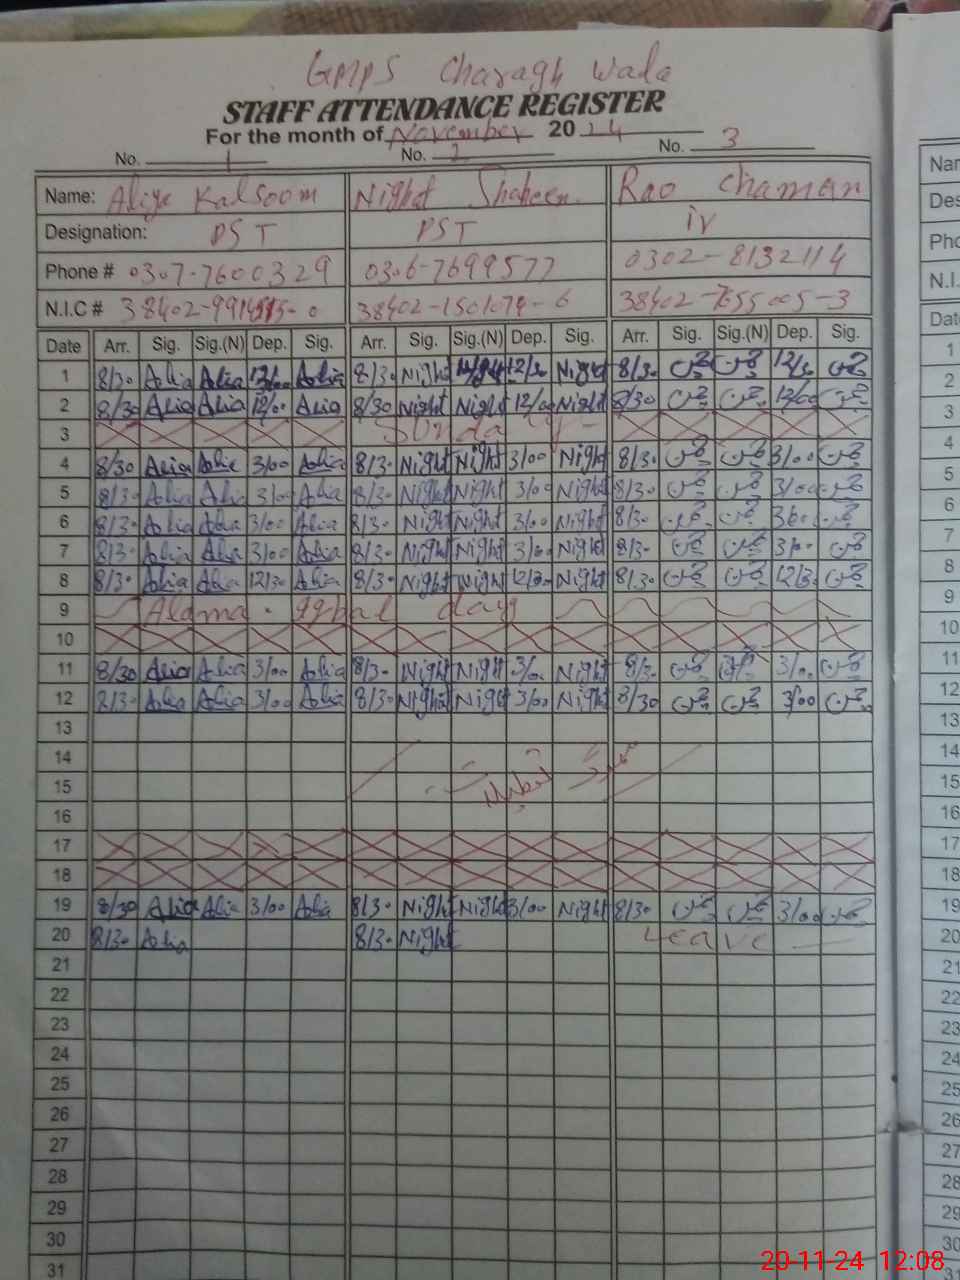 GMPS Charagh Wada
STAFF ATTENDANCE REGISTER
For the month of November 2024
No. 1 No. 2 No. 3
Name: Aliya Kalsoom Nighat Shaheen Rao Chaman
Designation: PST PST iv
Phone # 0307-7600329 0306-7699577 0302-8132114
N.I.C # 38402- 38402-1501074-6 38402-7655005-3
Date Arr. Sig. Sig.(N) Dep. Sig. Arr. Sig. Sig.(N) Dep. Sig. Arr. Sig. Sig.(N) Dep. Sig.
1 8/30 Alia Alia Alia 8/30 Night 12/30 Night 8/30 12/30
2 8/30 Alia Alia 12/00 Alia 8/30 Night Night 12/00 Night 8/30 12/00
3 Sunday
4 8/30 Alia Alia 3/00 Alia 8/30 Night Night 3/00 Night 8/30 3/00
5 8/30 Alia Alia 3/00 Alia 8/30 Night Night 3/00 Night 8/30 3/00
6 8/30 Alia Alia 3/00 Alia 8/30 Night Night 3/00 Night 8/30 3/00
7 8/30 Alia Alia 3/00 Alia 8/30 Night Night 3/00 Night 8/30 3/00
8 8/30 Alia Alia 12/30 Alia 8/30 Night Night 12/30 Night 8/30 12/30
9 Alama Iqbal day
10
11 8/30 Alia Alia 3/00 Alia 8/30 Night Night 3/00 Night 8/30 3/00
12 8/30 Alia Alia 3/00 Alia 8/30 Night Night 3/00 Night 8/30 3/00
13
14
15
16
17
18
19 8/30 Alia Alia 3/00 Alia 8/30 Night Night 3/00 Night 8/30 3/00
20 8/30 Alia 8/30 Night Leave
21
22
23
24
25
26
27
28
29
30
31
Date
1
2
3
4
5
6
7
8
9
10
11
12
13
14
15
16
17
18
19
20
21
22
23
24
25
26
27
28
29
30
20-11-24 12:08